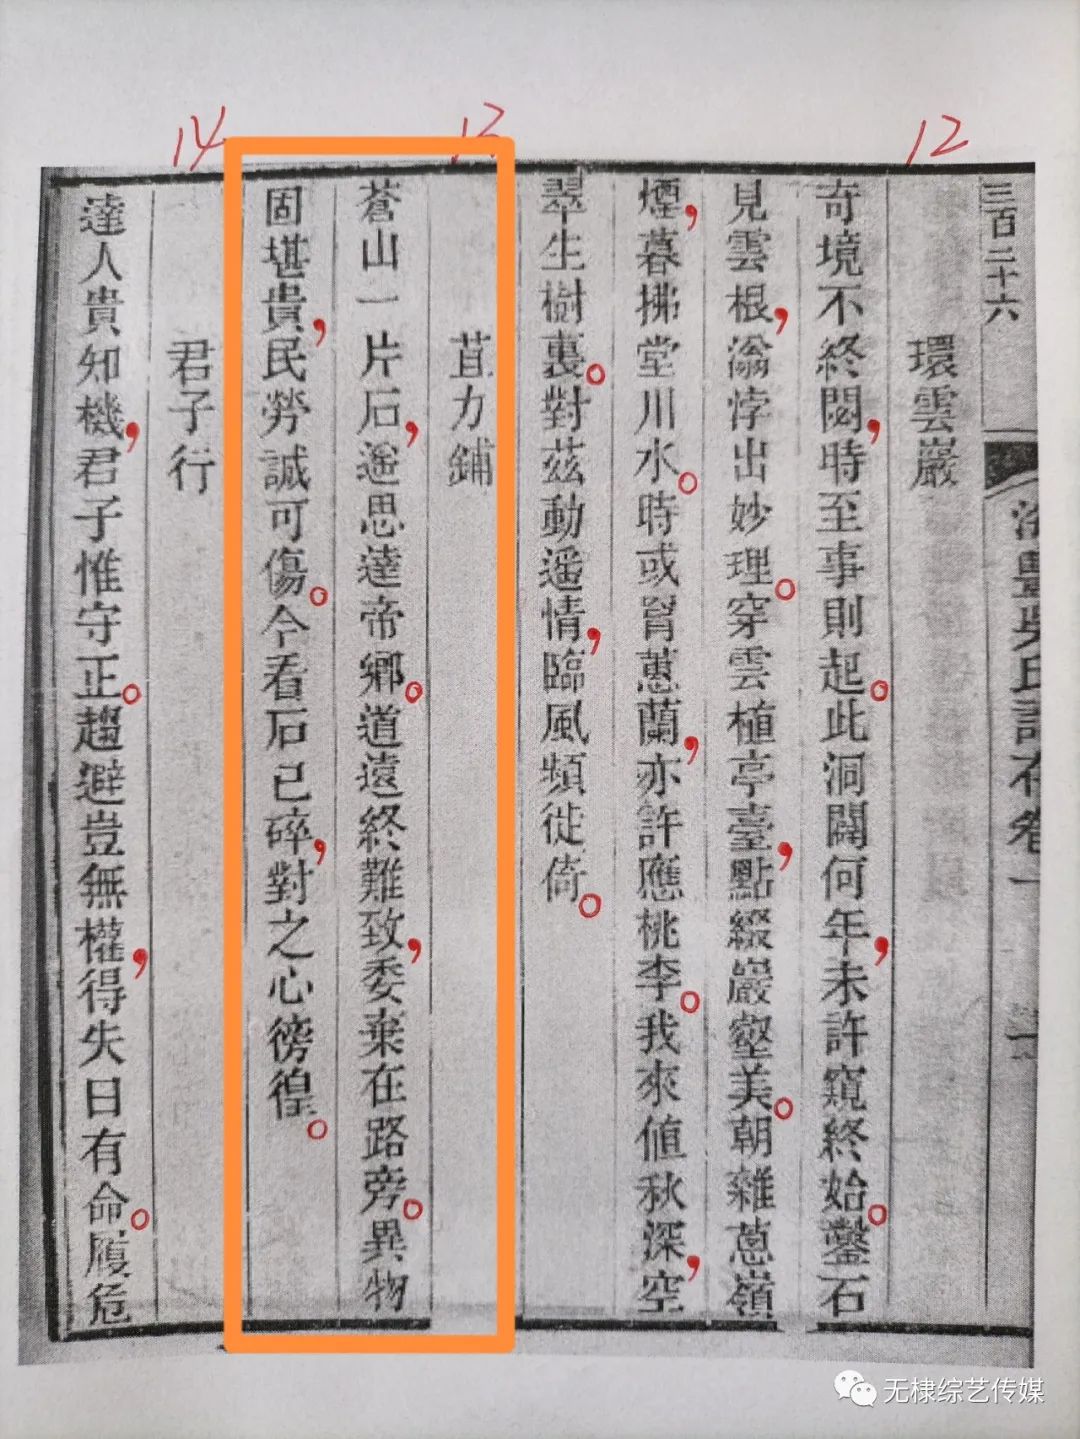 12
13
14
三百二十六
海豐吳氏詩存卷一
環雲巖
奇境不終閟，時至事則起。此洞闢何年，未許窺終始。鑿石
見雲根，滃悖出妙理。穿雲植亭臺，點綴巖壑美。朝雜蔥嶺
煙，暮拂堂川水。時或胃蕙蘭，亦許應桃李。我來値秋深，空
翠生樹裏。對茲動遥情，臨風頻徙倚。
苴力鋪
蒼山一片石，遥思達帝鄉。道遠終難致，委棄在路旁。異物
固堪貴，民勞誠可傷。今看石已碎，對之心徬徨。
君子行
達人貴知機，君子惟守正。趨避豈無權，得失日有命。履危
无棣综艺传媒